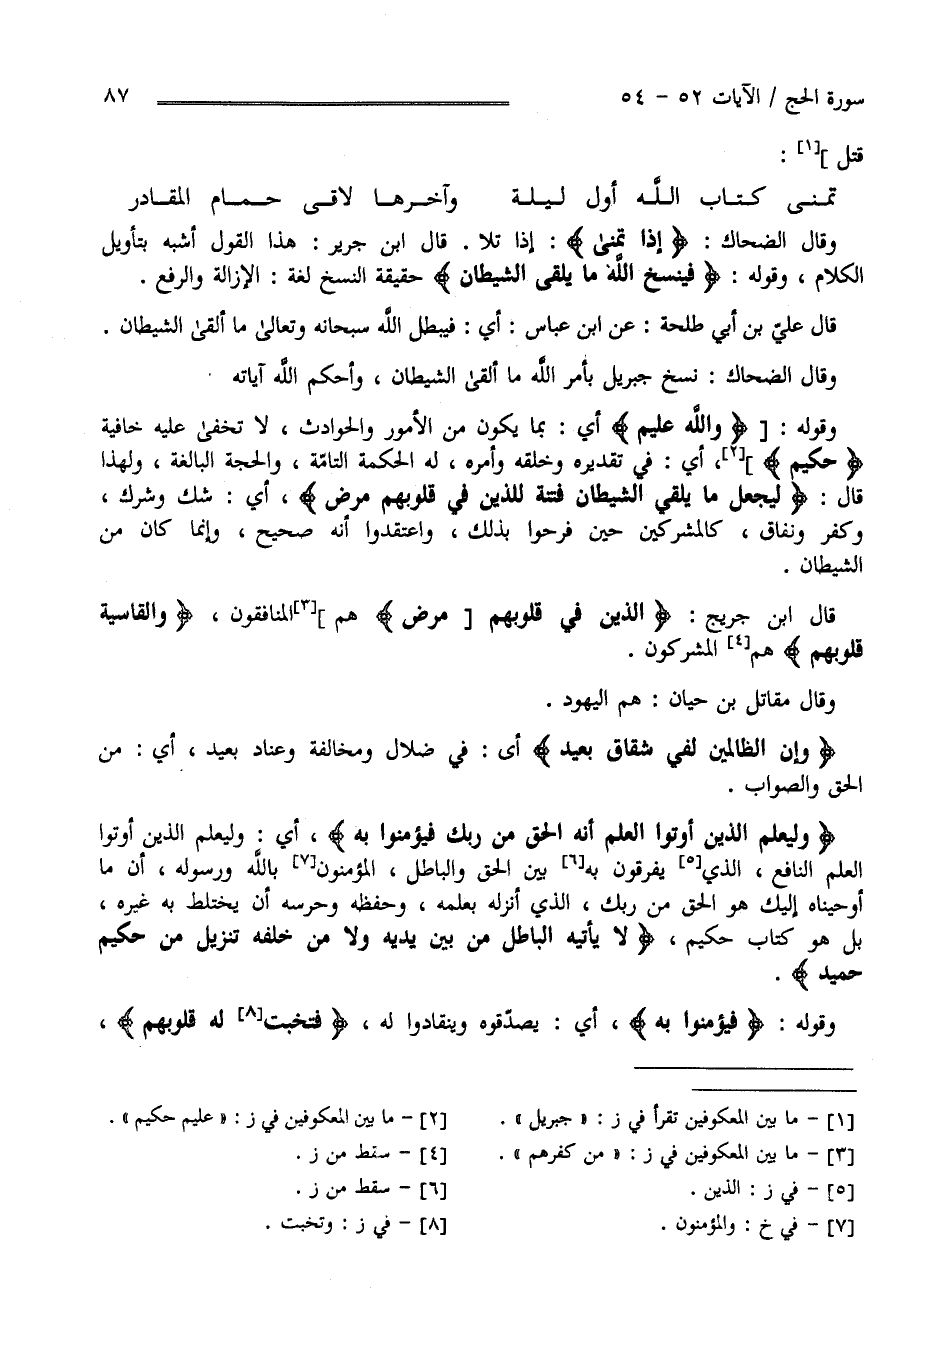 سورة الحج / الآيات ٥٢ - ٥٤ ٨٧
قتل ][١] :
تمنى كتاب اللَّه أول ليلة وآخرها لاقى حمام المقادر
وقال الضحاك : ﴿ إذا تمنىٰ ﴾ : إذا تلا . قال ابن جرير : هذا القول أشبه بتأويل
الكلام ، وقوله : ﴿ فينسخ اللَّه ما يلقى الشيطان ﴾ حقيقة النسخ لغة : الإزالة والرفع .
قال عليّ بن أبي طلحة : عن ابن عباس : أي : فيبطل اللَّه سبحانه وتعالىٰ ما ألقىٰ الشيطان .
وقال الضحاك : نسخ جبريل بأمر اللَّه ما ألقىٰ الشيطان ، وأحكم اللَّه آياته
وقوله : [ ﴿ واللَّه عليم ﴾ أي : بما يكون من الأمور والحوادث ، لا تخفىٰ عليه خافية
﴿ حكيم ﴾ ][٢]، أي : في تقديره وخلقه وأمره ، له الحكمة التامّة ، والحجة البالغة ، ولهذا
قال : ﴿ ليجعل ما يلقي الشيطان فتنة للذين في قلوبهم مرض ﴾ ، أي : شك وشرك ،
وكفر ونفاق ، كالمشركين حين فرحوا بذلك ، واعتقدوا أنه صحيح ، وإنما كان من
الشيطان .
قال ابن جريج : ﴿ الذين في قلوبهم [ مرض ﴾ هم ][٣]المنافقون ، ﴿ والقاسية
قلوبهم ﴾ هم[٤] المشركون .
وقال مقاتل بن حيان : هم اليهود .
﴿ وإن الظالمين لفي شقاق بعيد ﴾ أى : في ضلال ومخالفة وعناد بعيد ، أي : من
الحق والصواب .
﴿ وليعلم الذين أوتوا العلم أنه الحق من ربك فيؤمنوا به ﴾ ، أي : وليعلم الذين أوتوا
العلم النافع ، الذي[٥] يفرقون به[٦] بين الحق والباطل ، المؤمنون[٧] باللَّه ورسوله ، أن ما
أوحيناه إليك هو الحق من ربك ، الذي أنزله بعلمه ، وحفظه وحرسه أن يختلط به غيره ،
بل هو كتاب حكيم ، ﴿ لا يأتيه الباطل من بين يديه ولا من خلفه تنزيل من حكيم
حميد ﴾ .
وقوله : ﴿ فيؤمنوا به ﴾ ، أي : يصدّقوه وينقادوا له ، ﴿ فتخبت[٨] له قلوبهم ﴾ ،
[١] - ما بين المعكوفين تقرأ في ز : « جبريل » . [٢] - ما بين المعكوفين في ز : « عليم حكيم » .
[٣] - ما بين المعكوفين في ز : « من كفرهم » . [٤] - سقط من ز .
[٥] - في ز : الذين . [٦] - سقط من ز .
[٧] - في خ : والمؤمنون . [٨] - في ز : وتخبت .